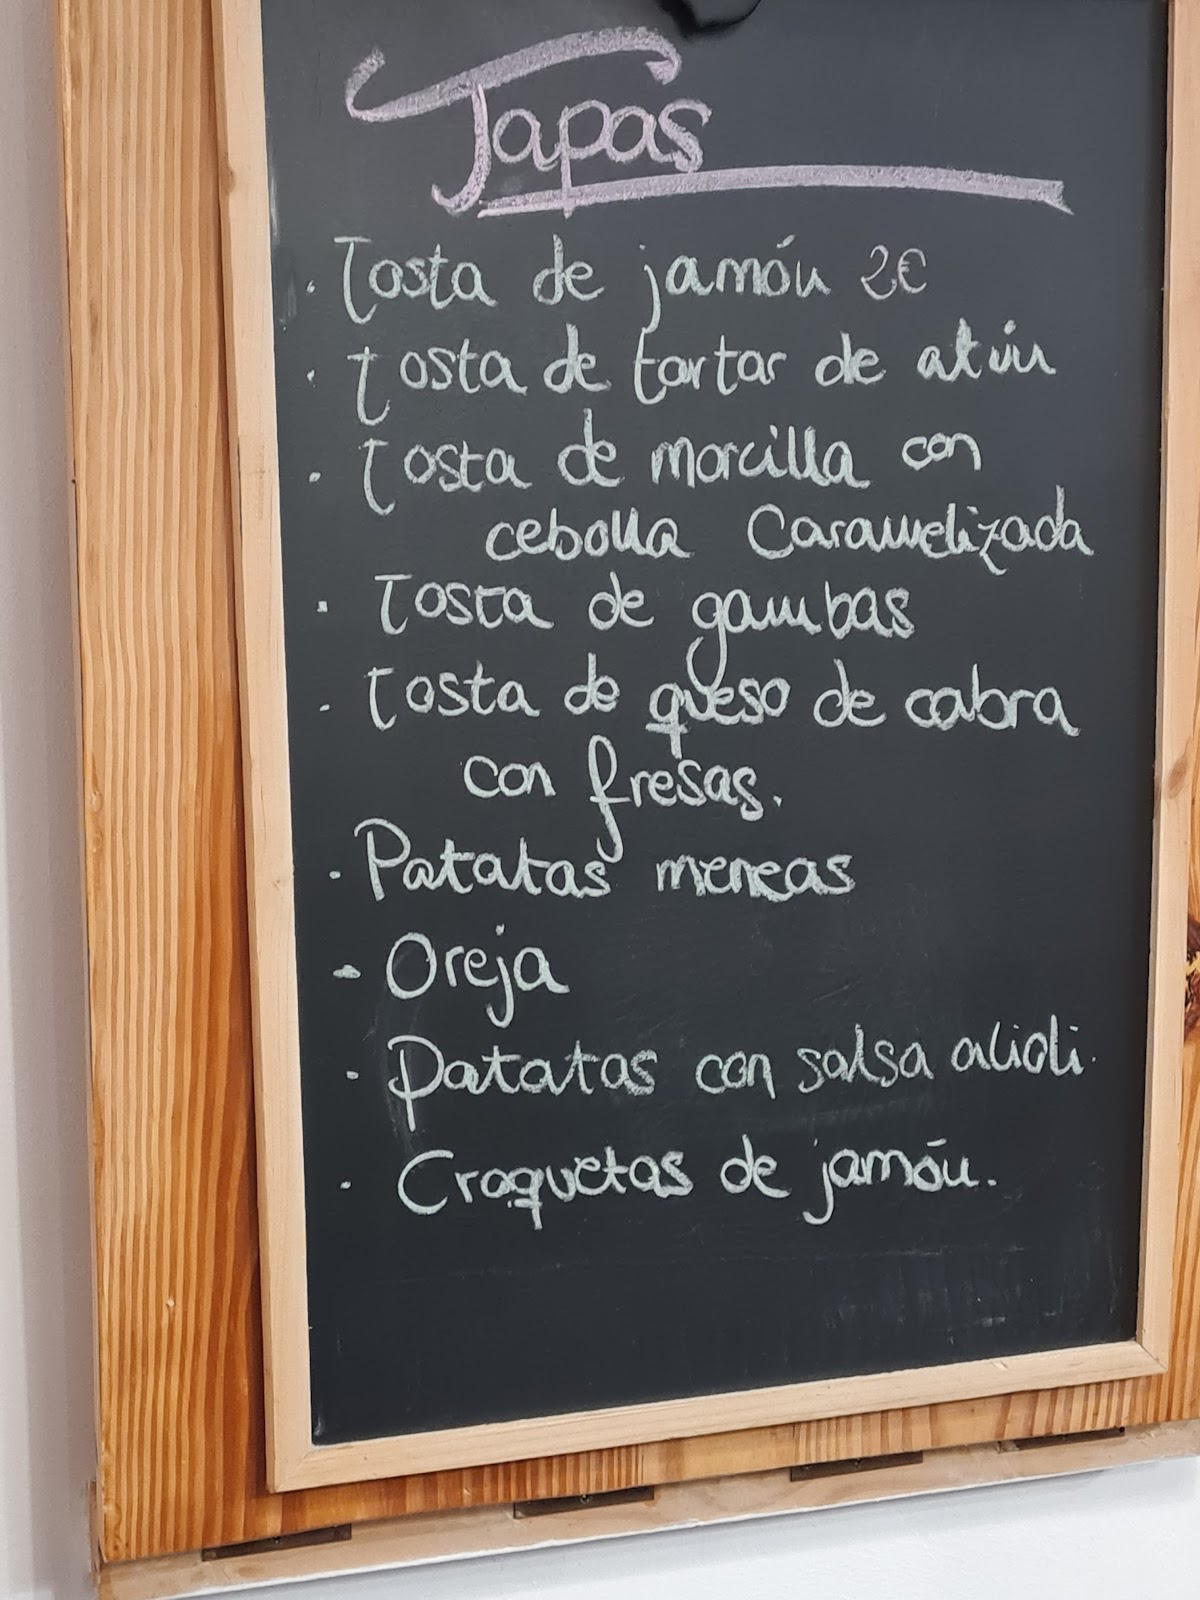 Tapas
· Tosta de jamón 2€
· Tosta de tartar de atún
· Tosta de morcilla con
cebolla Caramelizada
· Tosta de gambas
· Tosta de queso de cabra
con fresas.
· Patatas meneas
- Oreja
· Patatas con salsa alioli.
· Croquetas de jamón.